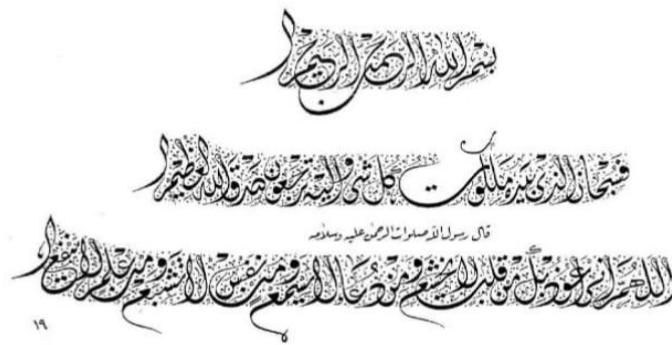 بسم الله الرحمن الرحيم
فسبحان الذي بيده ملكوت كل شئ واليه ترجعون صدق الله العظيم
قال رسول الله صلوات الرحمن عليه وسلامه
اللهم اني اعوذ بك من قلب لا يخشع ومن دعاء لا يسمع ومن نفس لا تشبع ومن علم لا ينفع
١٩